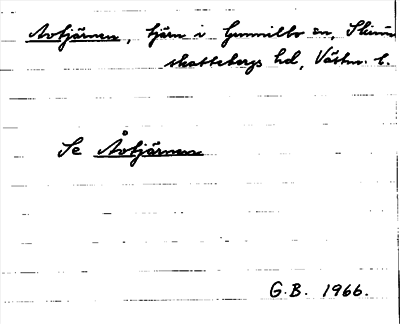 Avtjärnen, tjärn i Gunnilbo sn, Skinn-
skattebergs hd, Västm. l.
Se Åvtjärnen
G.B. 1966.